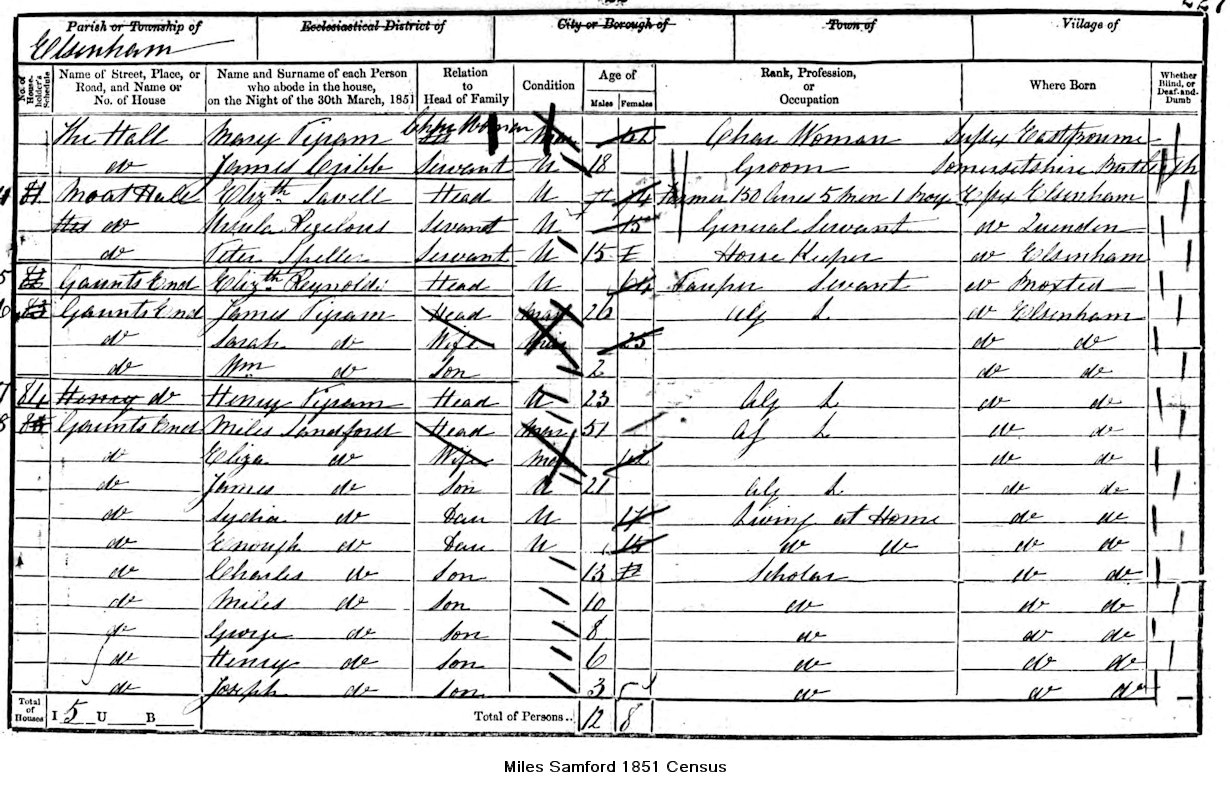 227
Parish or Township of Ecclesiastical District of City or Borough of Town of Village of
Elsenham
No. of House-holder's Schedule Name of Street, Place, or Road, and Name or No. of House Name and Surname of each Person who abode in the house, on the Night of the 30th March, 1851 Relation to Head of Family Condition Age of Males Females Rank, Profession, or Occupation Where Born Whether Blind, or Deaf-and-Dumb
The Hall Mary Tipam Char Woman Mar Char Woman Sussex Eastbourne
do James Cribb Servant U 18 Groom Somersetshire
Moat Hall Elizth Savell Head U Farmer 130 Acres 5 Men 1 boy Essex Elsenham
do Ursula Servant U 15 General Servant do Quendon
do Peter Speller Servant U 15 Horse Keeper do Elsenham
Gaunts End Elizth Reynolds Head U Pauper Servant do Broxted
Gaunts End James Tipam Head Mar 26 Ag L do Elsenham
do Sarah do Wife Mar 25 do do
do Wm do Son 2 do do
84 Henry do Henry Tipam Head U 23 Ag L do do
Gaunts End Miles Sandford Head Mar 51 Ag L do do
do Eliza do Wife Mar 42 do do
do James do Son U 21 Ag L do do
do Lydia do Dau U 17 Living at Home do do
do Enough do Dau U 15 do do do do
do Charles do Son 13 Scholar do do
do Miles do Son 10 do do do
do George do Son 8 do do do
do Henry do Son 6 do do do
do Joseph do Son 3 do do do
Total of Houses I 5 U B Total of Persons.. 12 8
Miles Samford 1851 Census